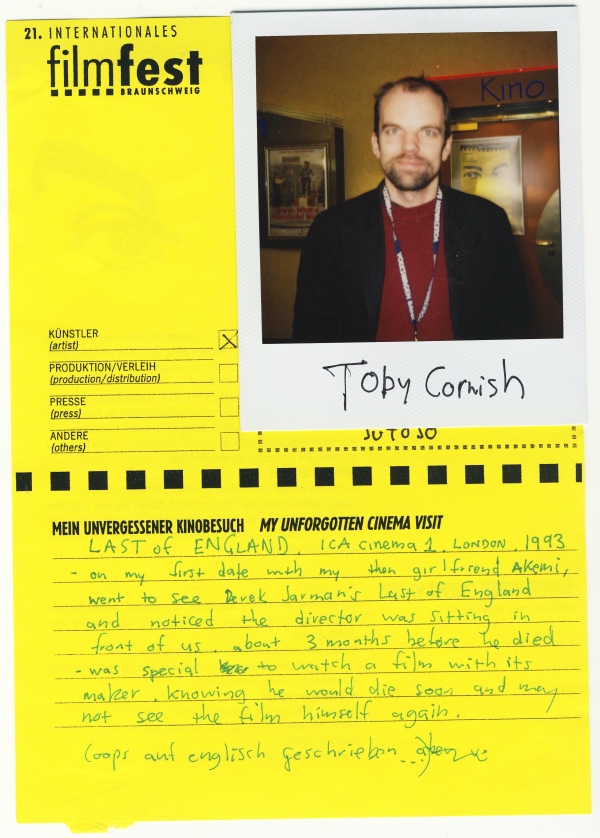 21. INTERNATIONALES
filmfest
BRAUNSCHWEIG
Kino
KÜNSTLER
(artist)
PRODUKTION/VERLEIH
(production/distribution)
PRESSE
(press)
ANDERE
(others)
Toby Cornish
MEIN UNVERGESSENER KINOBESUCH MY UNFORGOTTEN CINEMA VISIT
LAST of ENGLAND. ICA cinema 1. LONDON. 1993
- on my first date with my then girlfriend Akemi,
went to see Derek Jarman's Last of England
and noticed the director was sitting in
front of us. about 3 months before he died
- was special to watch a film with its
maker. knowing he would die soon and may
not see the film himself again.
(oops auf englisch geschrieben...